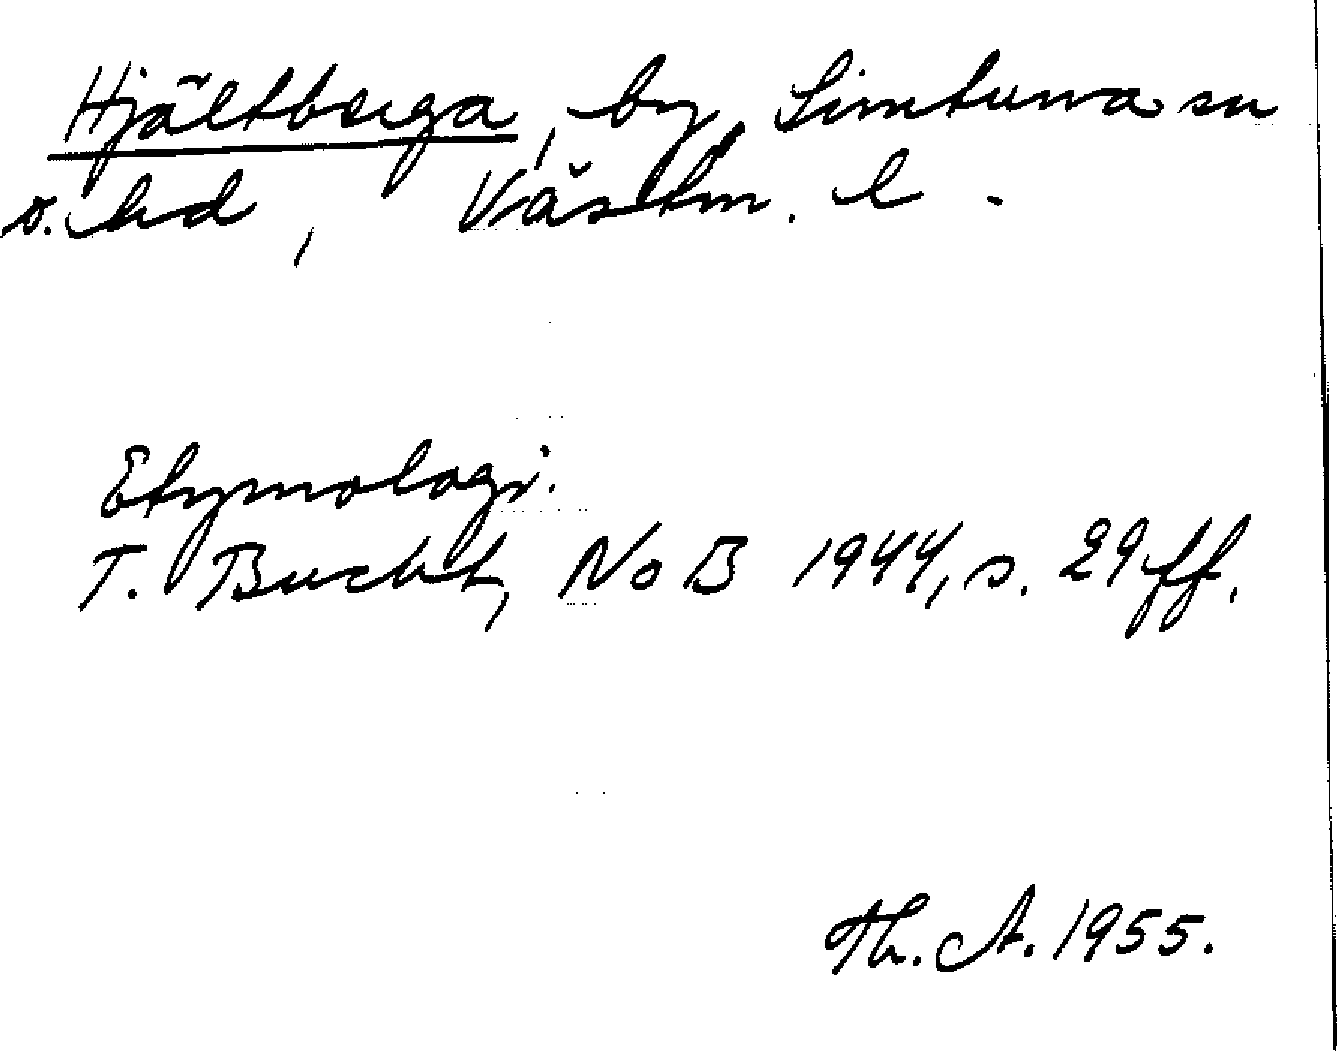 Hjältberga, by, Simtuna sn
o. hd, Västm. l.
Etymologi.
T. Bucht, NoB 1944, s. 29 ff.
Th. A. 1955.